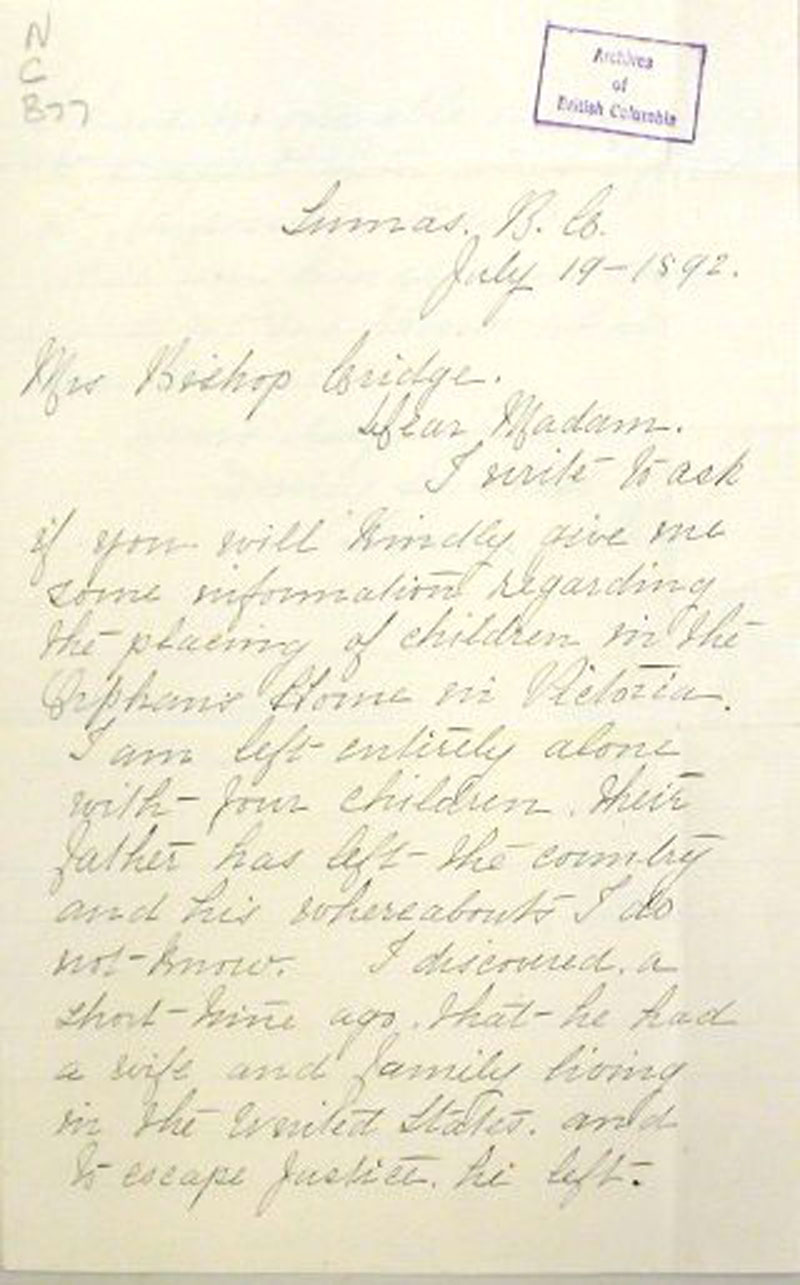 N
C
B77
Archives
of
British Columbia
Sumas. B. C.
July 19-1892.
Mrs Bishop Cridge.
Dear Madam.
I write to ask
if you will kindly give me
some information regarding
the placing of children in the
Orphans Home in Victoria.
I am left entirely alone
with four children. their
father has left the country
and his whereabouts I do
not know. I discovered, a
short time ago, that he had
a wife and family living
in the United States. and
to escape justice, he left.